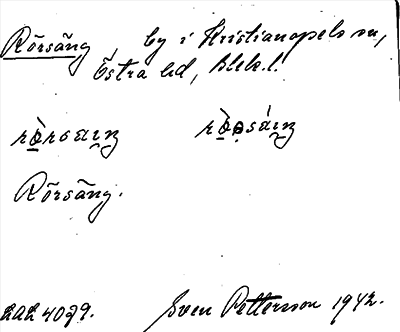 Rörsäng by i Kristianopels sn,
Östra hd, Blek.l.
Rörsäng.
LAL 4079. Sven Petterson 1942.